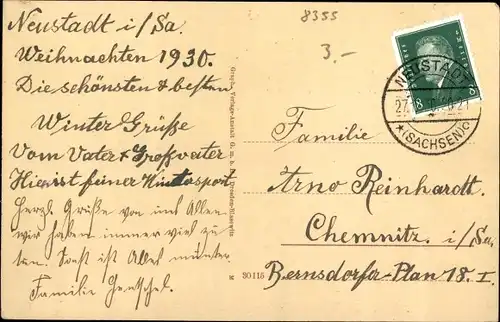 8355
3.-
Neustadt i/Sa.
Weihnachten 1930.
Die schönsten & besten
Winter Grüße
Vom Vater & Großvater
Hier ist feiner Wintersport
Herzl. Grüße von uns Allen
wir haben immer viel zu
tun. Sonst ist Alles munter.
Familie Hentschel.
Graph. Verlags-Anstalt G. m. b. H., Dresden-Blasewitz
30115
NEUSTADT
27.
(SACHSEN)
8
Familie
Arno Reinhardt.
Chemnitz. i/Sa.
Bernsdorfer-Plan 18. I.